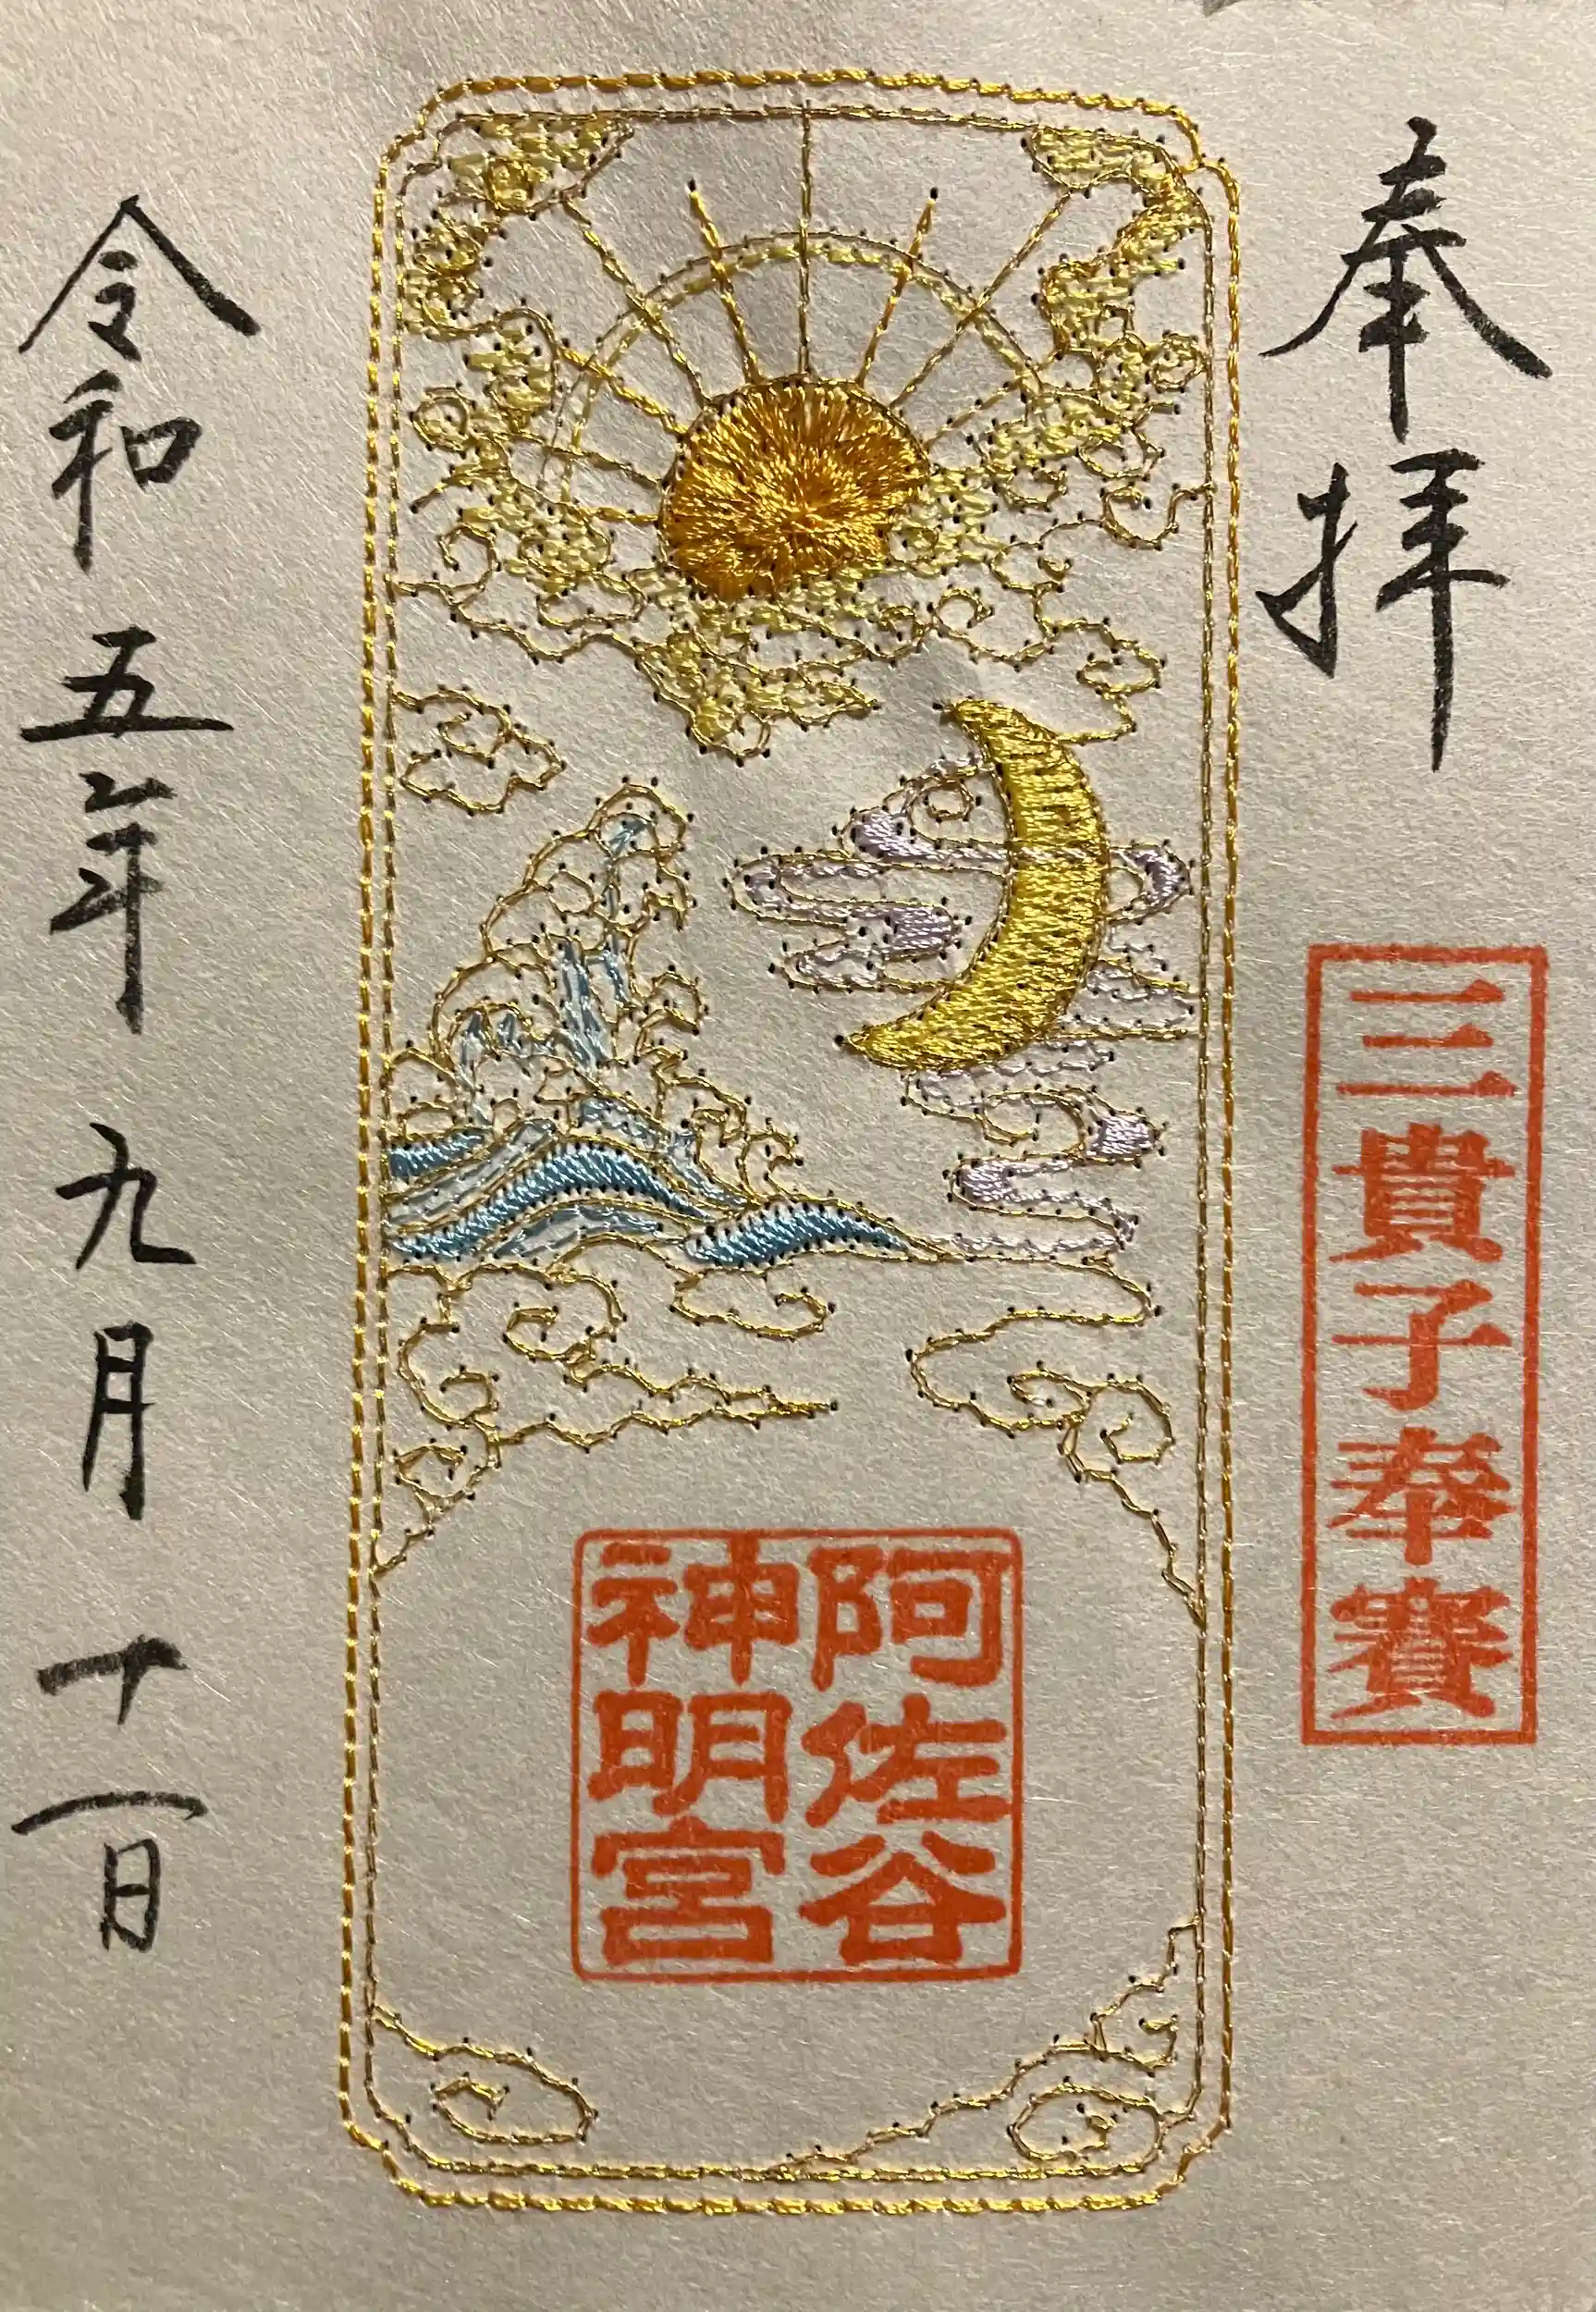 奉拝
三貴子奉賽
阿佐谷
神明宮
令和五年九月十一日